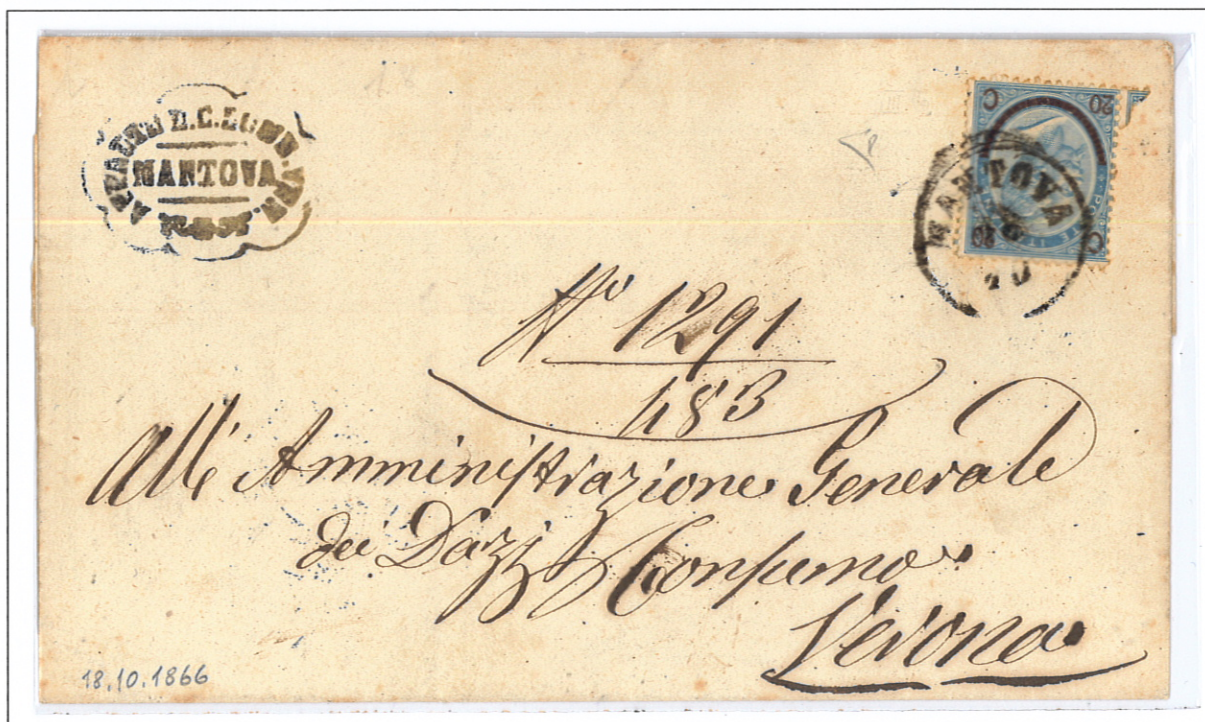 D.C. LOMB. VEN.
MANTOVA
20
C
C
MANTOVA
N.º 1291
483
All'Amministrazione Generale
dei Dazj Consumo
Verona
18.10.1866